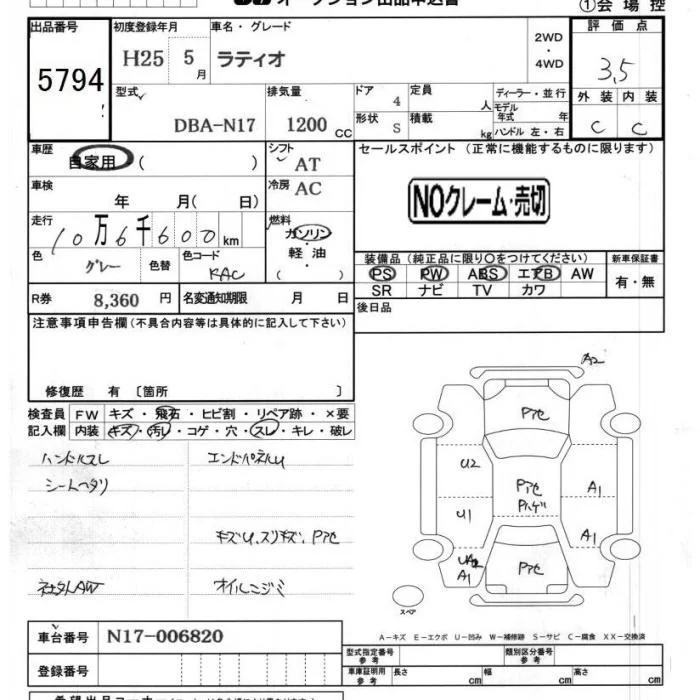 オークション出品申込書
①会場控
出品番号
5794
初度登録年月
H25 5月
車名・グレード
ラティオ
2WD
・
4WD
評価点
3,5
型式
DBA-N17
排気量
1200 CC
ドア 4
形状 S
定員 人
積載 kg
ディーラー・並行
モデル年式 年
ハンドル 左・右
外装 内装
C C
車歴
自家用 ( )
シフト
AT
セールスポイント (正常に機能するものに限ります)
NOクレーム・売切
車検
年 月( 日)
冷房
AC
走行
10万6千600km
燃料
ガソリン
・
軽油
・
( )
色
グレー
色替
色コード
KAC
装備品 (純正品に限り○をつけてください)
PS PW ABS エアB AW
SR ナビ TV カワ
新車保証書
有・無
R券 8,360 円
名変通知期限 月 日
後日品
注意事項申告欄 (不具合内容等は具体的に記入して下さい)
修復歴 有 〔箇所 〕
検査員記入欄
FW キズ・飛石・ヒビ割・リペア跡・×要
内装 キズ・汚レ・コゲ・穴・スレ・キレ・破レ
ハンドルスレ
シートヘタリ
エンドパネルU
キズU,スリキズ,Pアセ
社外AW
オイルニジミ
A2
Pアセ
U2
Pアセ
Pハゲ
A1
U1
A1
UA2
A1
Pアセ
スペア
A-キズ E-エクボ U-凹み W-補修跡 S-サビ C-腐食 XX-交換済
車台番号 N17-006820
登録番号
型式指定番号
参考
類別区分番号
参考
車庫証明用
参考
長さ cm
幅 cm
高さ cm